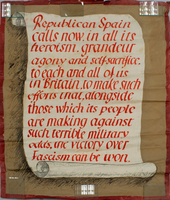 Republican Spain
calls now, in all its
heroism, grandeur
agony and self-sacrifice,
to each and all of us
in Britain, to make such
efforts that, alongside
those which its people
are making against
such terrible military
odds, the victory over
Fascism can be won.